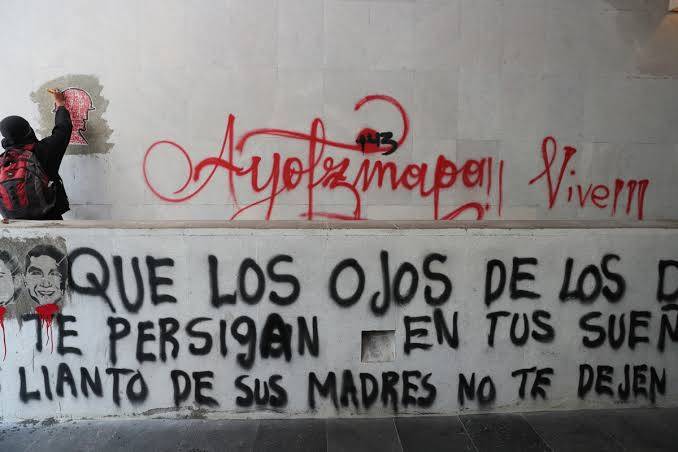 +43
Ayotzinapa!!! Vive!!!
QUE LOS OJOS DE LOS D
TE PERSIgAN EN TUS SUEÑ
LlANTO DE SUS MADRES NO TE DEJEN